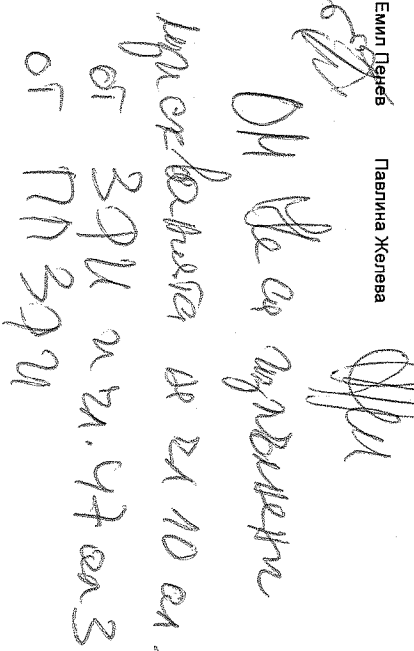 Емил Пенев Павлина Желева
Не са изпълнени
изискванията на чл 10 ал.
от и чл. 47 ал 3
от ПП